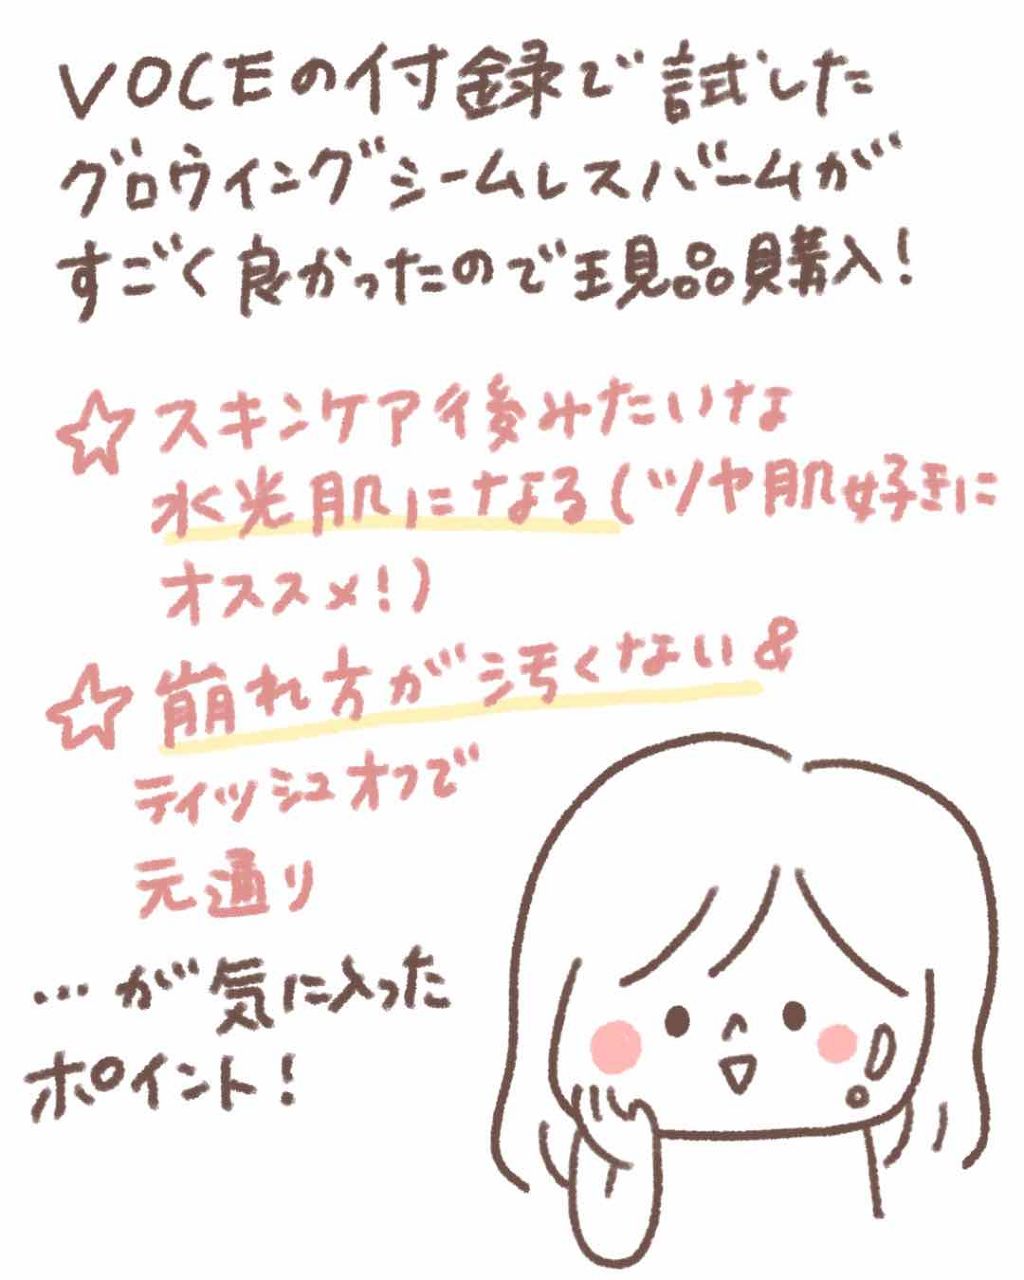 VOCEの付録で試した
グロウイングシームレスバームが
すごく良かったので現品購入!
☆スキンケア後みたいな
水光肌になる(ツヤ肌好きに
オススメ!)
☆崩れ方が汚くない&
ティッシュオフで
元通り
…が気に入った
ポイント!